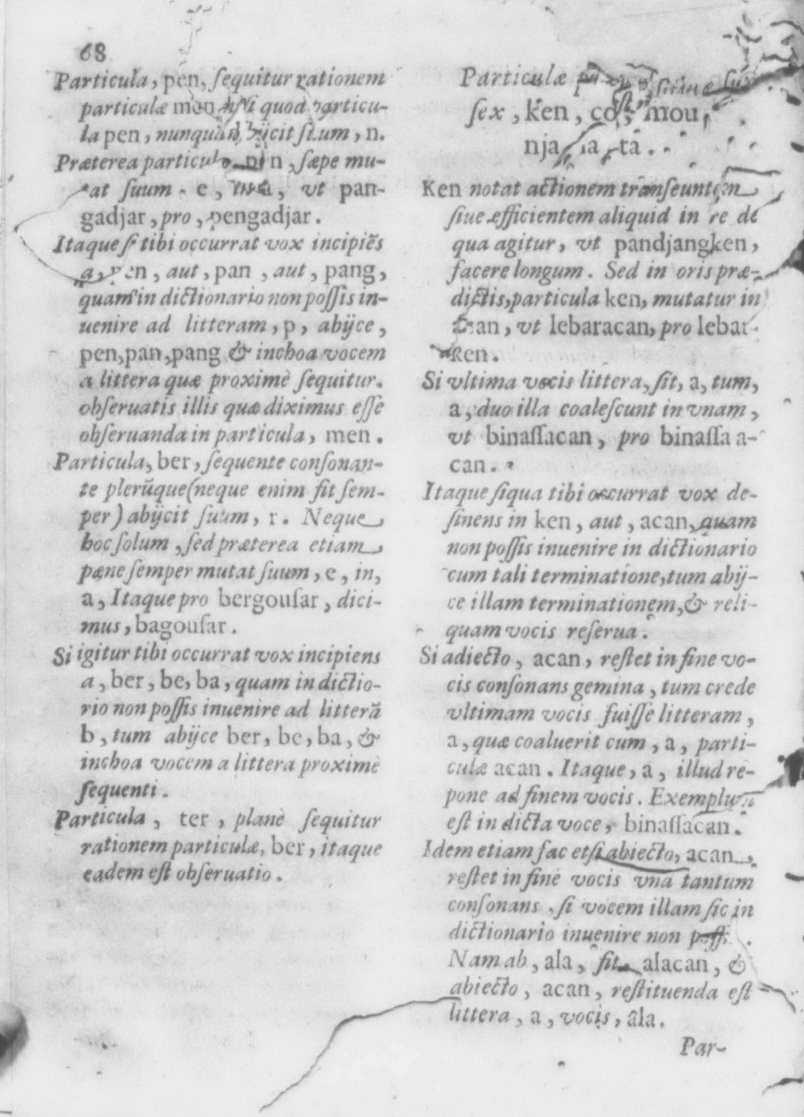 68
Particula, pen, ſequitur rationem
particulæ men, niſi quod particu-
la pen, nunquam abijcit ſuum, n.
Præterea particula, pen, ſæpe mu-
tat ſuum e, in a, vt pan-
gadjar, pro, pengadjar.
Itaque ſi tibi occurrat vox incipiẽs
a, pen, aut, pan, aut, pang,
quam in dictionario non poſſis in-
uenire ad litteram, p, abijce,
pen, pan, pang & inchoa vocem
a littera quæ proximè ſequitur.
obſeruatis illis quæ diximus eſſe
obſeruanda in particula, men.
Particula, ber, ſequente conſonan-
te plerũque (neque enim fit ſem-
per) abijcit ſuum, r. Neque
hoc ſolum, ſed præterea etiam
pæne ſemper mutat ſuum, e, in,
a, Itaque pro bergouſar, dici-
mus, bagouſar.
Si igitur tibi occurrat vox incipiens
a, ber, be, ba, quam in dictio-
rio non poſſis inuenire ad litterã
b, tum abijce ber, be, ba, &
inchoa vocem a littera proximè
ſequenti.
Particula, ter, planè ſequitur
rationem particulæ, ber, itaque
eadem eſt obſeruatio.
Particulæ
ſex, ken, mou,
nja, la, ta.
Ken notat actionem tranſeuntem
ſiue efficientem aliquid in re de
qua agitur, vt pandjangken,
facere longum. Sed in oris præ-
dictis, particula ken, mutatur in
can, vt lebaracan, pro lebar-
ken.
Si vltima vocis littera, ſit, a, tum,
a, duo illa coaleſcunt in vnam,
vt binaſſacan, pro binaſſa a-
can.
Itaque ſiqua tibi occurrat vox de-
ſinens in ken, aut, acan, quam
non poſſis inuenire in dictionario
cum tali terminatione, tum abij-
ce illam terminationem, & reli-
quam vocis reſerua.
Si adiecto, acan, reſtet in fine vo-
cis conſonans gemina, tum crede
vltimam vocis fuiſſe litteram,
a, quæ coaluerit cum, a, parti-
culæ acan. Itaque, a, illud re-
pone ad finem vocis. Exemplum
eſt in dicta voce, binaſſacan.
Idem etiam fac etſi abiecto, acan,
reſtet in fine vocis vna tantum
conſonans, ſi vocem illam ſic in
dictionario inuenire non poſſis.
Nam ab, ala, fit, alacan, &
abiecto, acan, reſtituenda eſt
littera, a, vocis, ala.
Par-